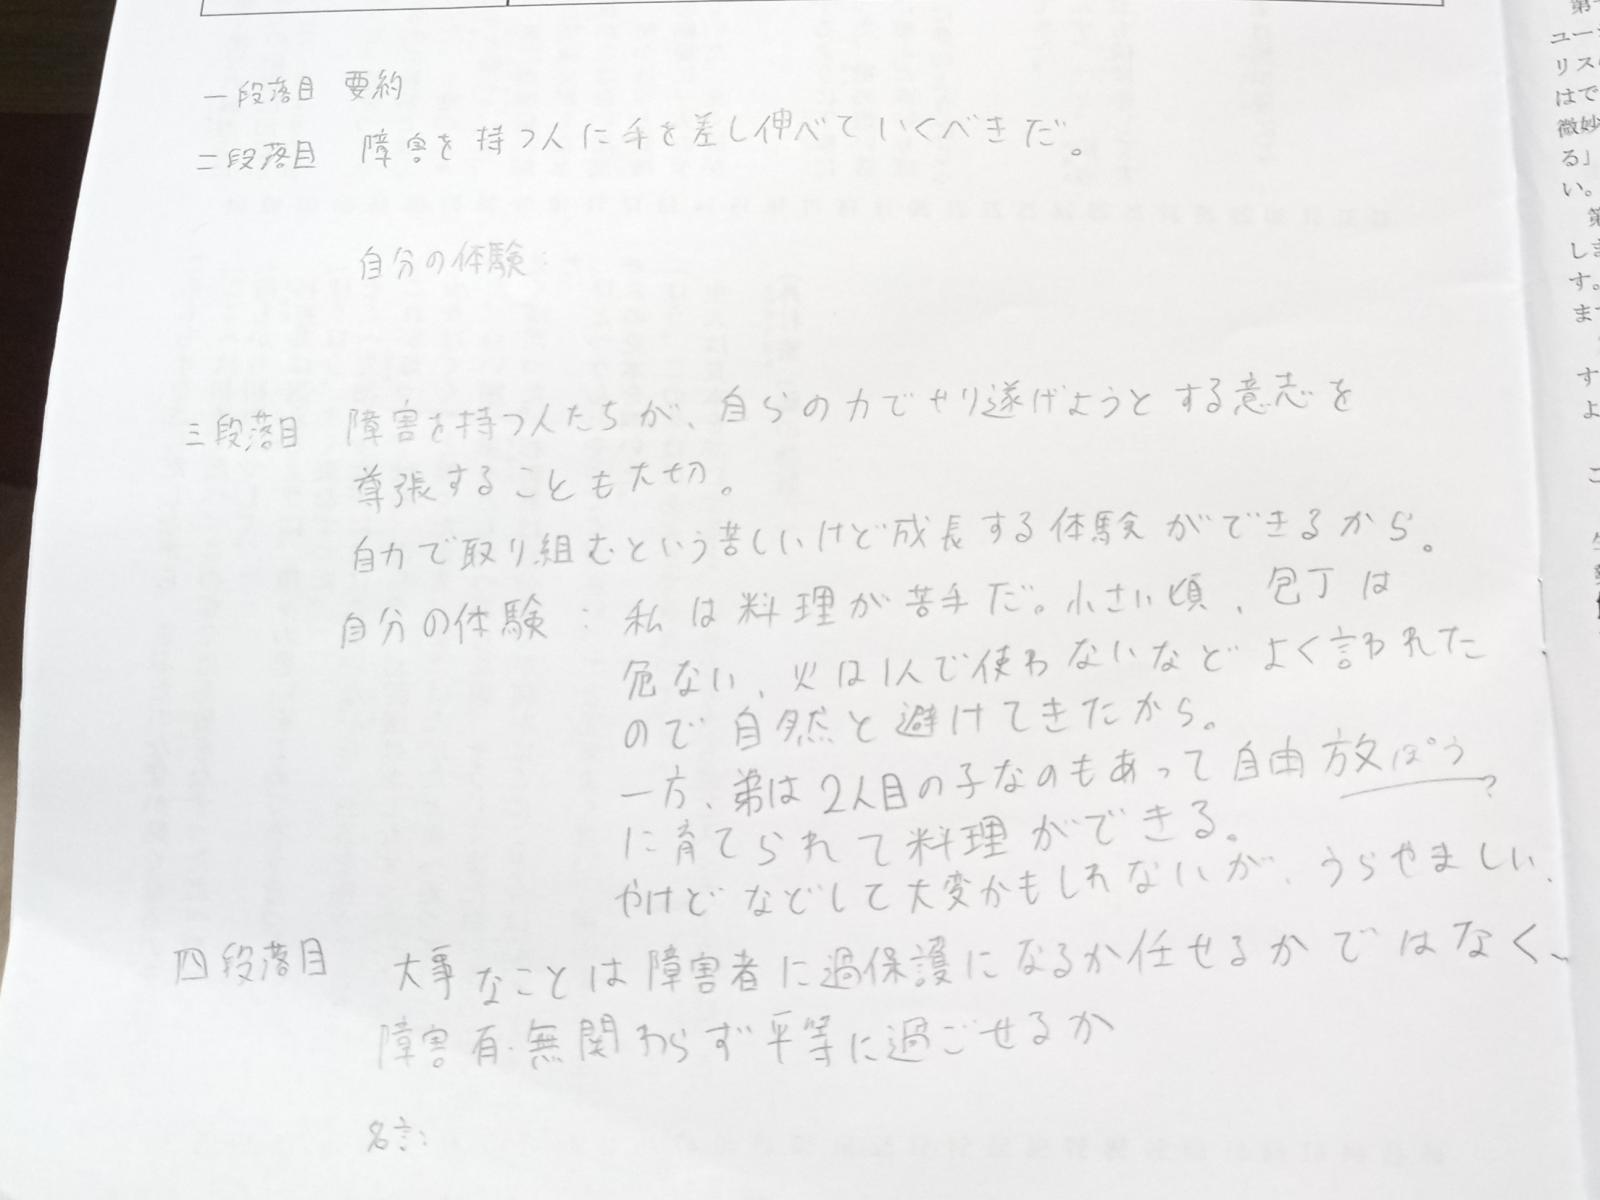 一段落目 要約
二段落目 障害を持つ人に手を差し伸べていくべきだ。
自分の体験：
三段落目 障害を持つ人たちが、自らの力でやり遂げようとする意志を
尊張することも大切。
自力で取り組むという苦しいけど成長する体験ができるから。
自分の体験：私は料理が苦手だ。小さい頃、包丁は
危ない、火は1人で使わないなどよく言われた
ので自然と避けてきたから。
一方、弟は2人目の子なのもあって自由放ぽう?
に育てられて料理ができる。
やけどなどして大変かもしれないが、うらやましい、
四段落目 大事なことは障害者に過保護になるか任せるかではなく、
障害有・無関わらず平等に過ごせるか
名言：
ユー
リス
はで
微妙
る」
い。
第
しま
す。
ます
す
よ